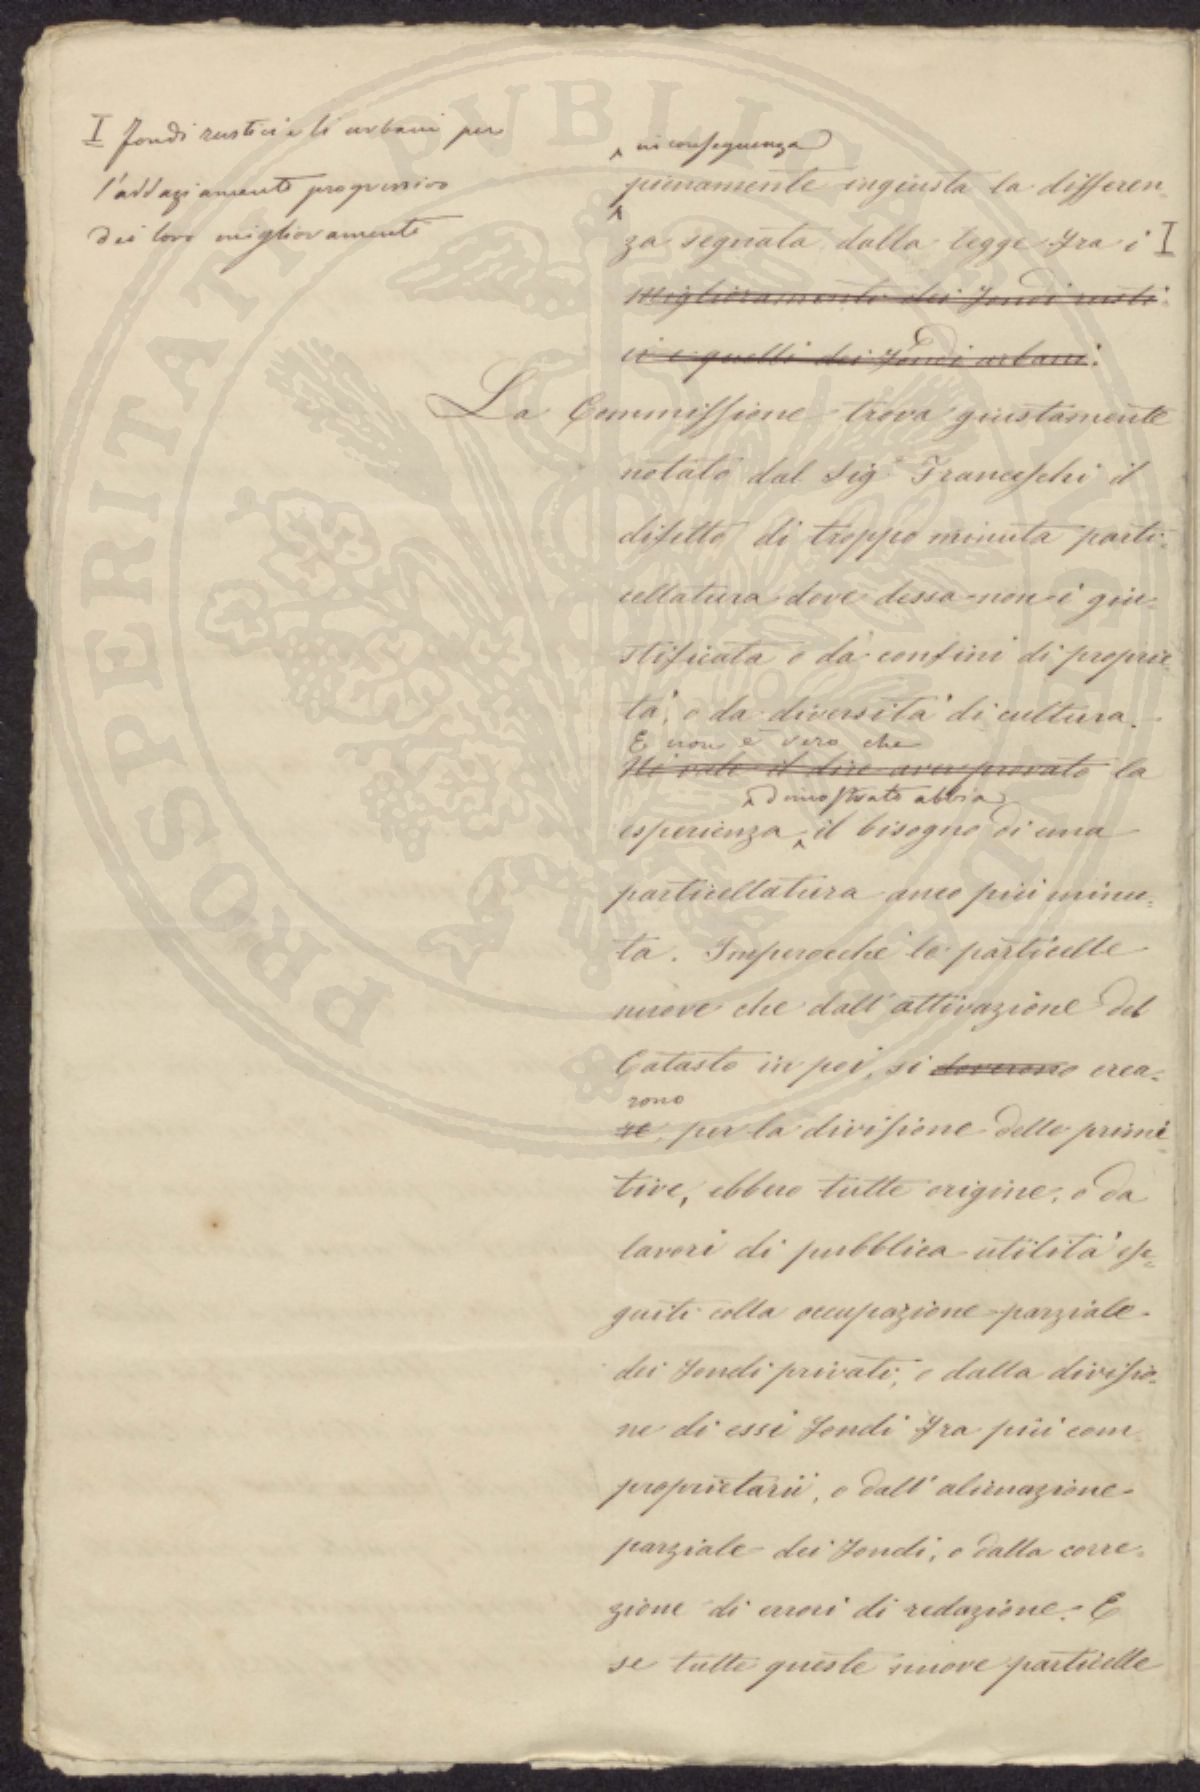 I fondi rustici e li urbani per
l'addaziamento progressivo
dei loro miglioramenti
in conseguenza
pienamente ingiusta la differen-
za segnata dalla legge fra i I
miglioramenti dei fondi rusti-
ci e quelli dei fondi urbani.
La Commissione trova giustamente
notato dal Sig.r Franceschi il
difetto di troppo minuta parti-
cellatura dove dessa non è giu-
stificata o da confini di proprie-
tà, o da diversità di cultura.
E non è vero che
Nè vale il dire aver provato la
dimostrato abbia
esperienza il bisogno di una
particellatura anco più minu-
ta. Imperocchè le particelle
nuove che dall'attivazione del
Catasto in poi, si doverono crea-
rono
re, per la divisione delle primi-
tive, ebbero tutte origine, o da
lavori di pubblica utilità ese-
guiti colla occupazione parziale
dei fondi privati, o dalla divisio-
ne di essi fondi fra più com-
proprietarii, o dall'alienazione
parziale dei fondi, o dalla corre-
zione di errori di redazione. E
se tutte queste nuove particelle
PROSPERITATI PUBLICAE